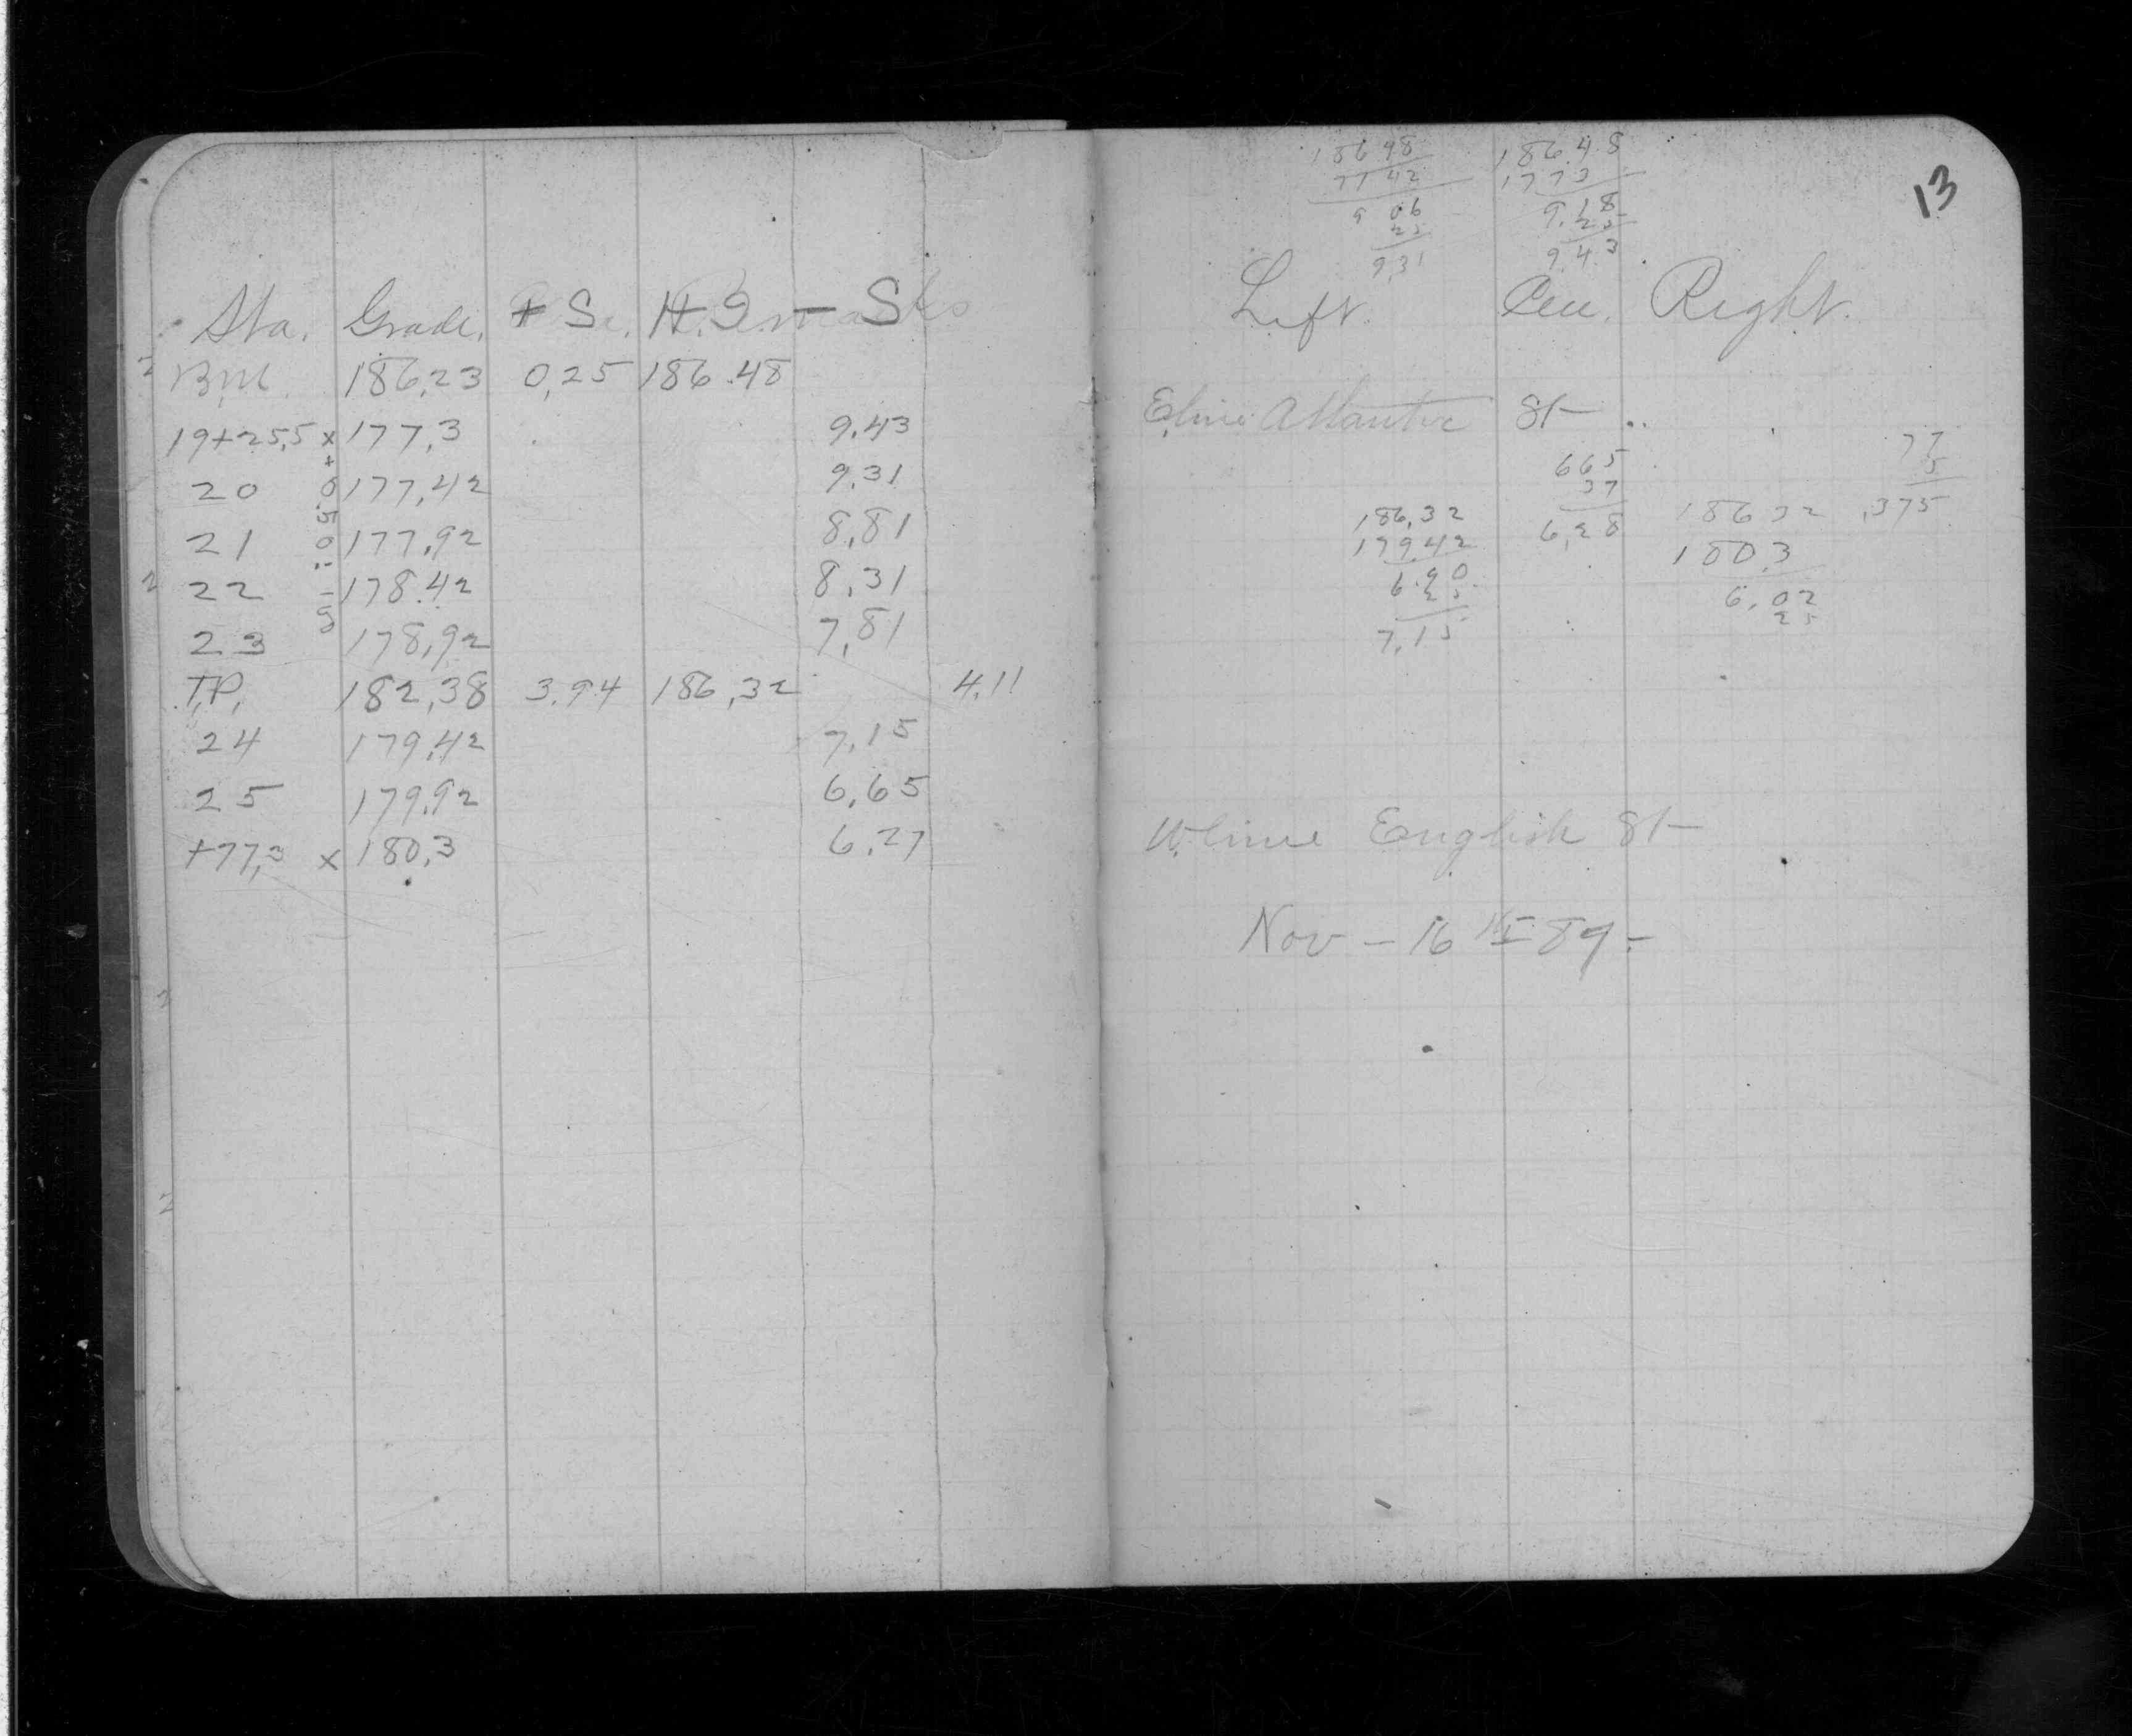 Sta. Grade. + S. H.I. - S
BM 186,23 0,25 186.48
19+25,5 x 177,3 9,43
20 177,42 9,31
21 177,92 8,81
22 178.42 8,31
23 178,92 7,81
T.P. 182,38 3.94 186,32 4.11
24 179,42 7,15
25 179.92 6,65
+77,3 x 180,3 6,27
+ 0.5 0 : 100
13
186 48
177 42
9 06
25
9,31
186.48
1773
9.18
.25
9.43
Left. Cen. Right.
E line Atlantic St
665
37
6,28
77
5
,375
186,32
179.42
6.90
25
7,15
186 32
180.3
6,02
25
W. line English St
Nov - 16th 89-